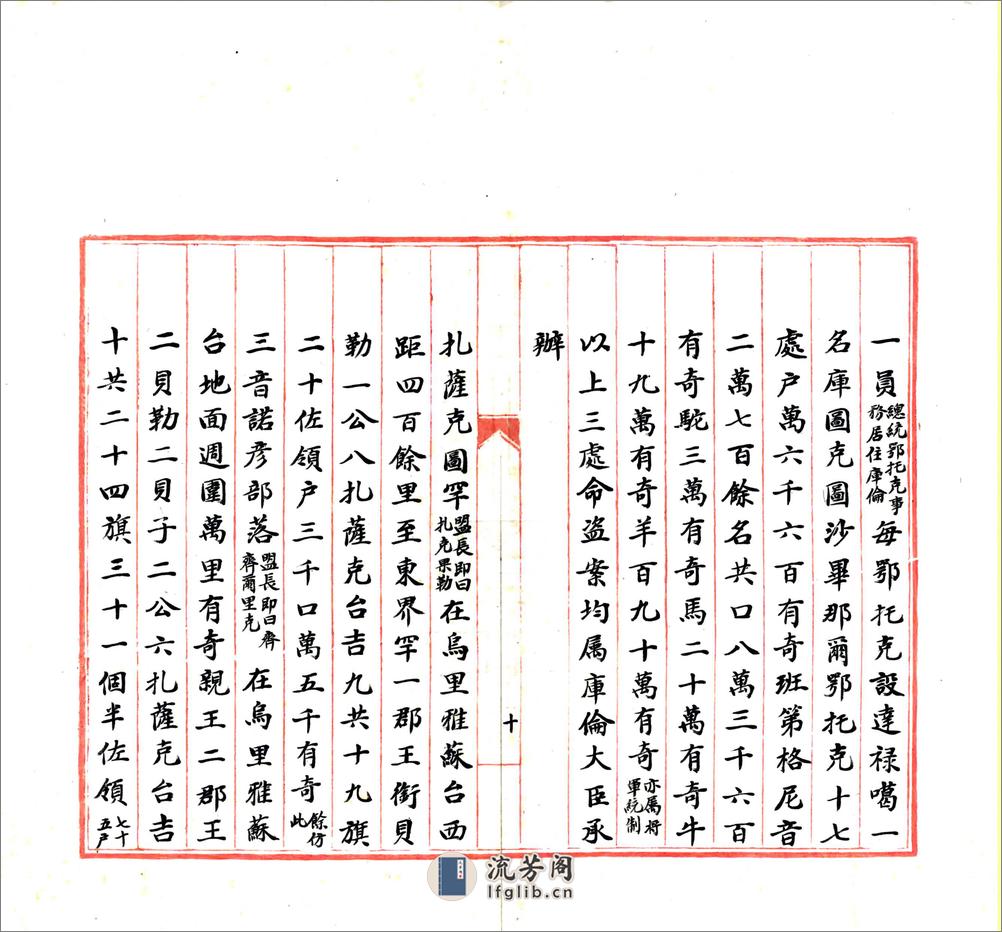 一員總統鄂托克事務居住庫倫每鄂托克設達祿噶一
名庫圖克圖沙畢那爾鄂托克十七
處戶萬六千六百有奇班第格尼音
二萬七百餘名共口八萬三千六百
有奇駝三萬有奇馬二十萬有奇牛
十九萬有奇羊百九十萬有奇亦属將軍統制
以上三處命盗案均属庫倫大臣承
辦
十
扎薩克圖罕盟長即曰扎克果勒在烏里雅蘇台西
距四百餘里至東界罕一郡王銜貝
勒一公八扎薩克台吉九共十九旗
二十佐領戶三千口萬五千有奇餘仿此
三音諾彦部落盟長即曰齊齊爾里克在烏里雅蘇
台地面週圍萬里有奇親王二郡王
二貝勒二貝子二公六扎薩克台吉
十共二十四旗三十一個半佐領七十五戶
流芳阁
lfglib.cn